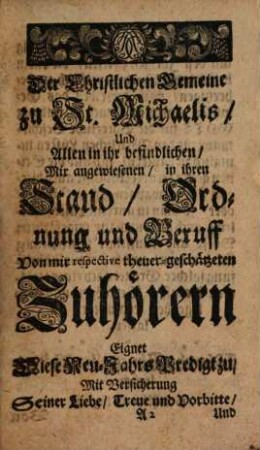 Der Christlichen Gemeine
zu St. Michaelis/
Und
Allen in ihr befindlichen/
Mir angewiesenen/ in ihren
Stand/ Ord-
nung und Beruff
Von mir respective theuer-geschätzeten
Zuhörern
Eignet
Diese Neu-Jahrs Predigt zu/
Mit Versicherung
Seiner Liebe/ Treue und Vorbitte/
A2 Und